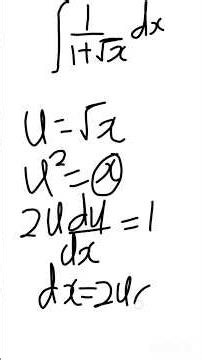 ∫ 1/(1+√x) dx
u = √x
u² = x
2u du/dx = 1
dx = 2u